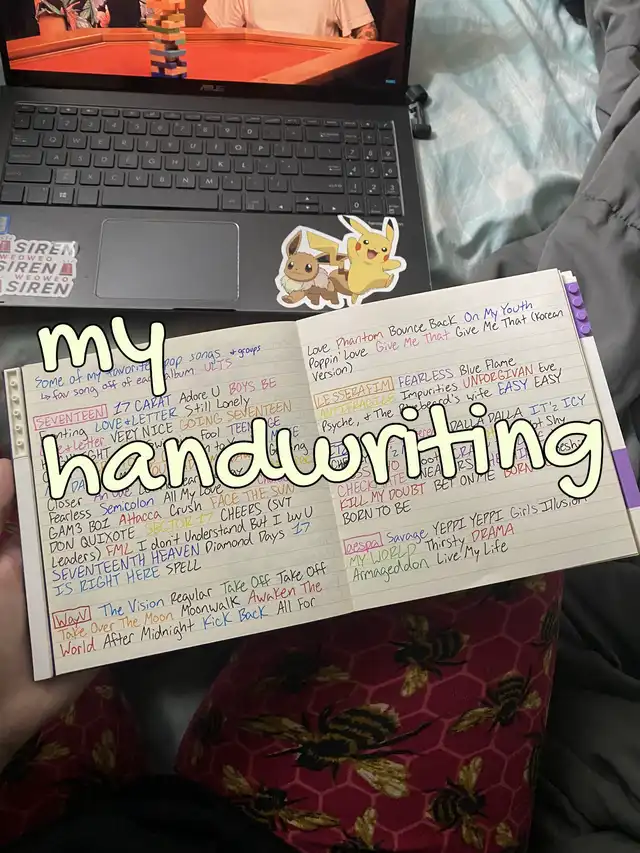 ASUS
SIREN
WEOWEO
SIREN
WEOWEO
SIREN
my
handwriting
Some of my favorite pop songs + groups
↳ few song off of each album ULTS
SEVENTEEN 17 CARAT Adore U BOYS BE
LOVE & LETTER Still Lonely
VERY NICE GOING SEVENTEEN
Fool TEENAGE
Closer
Fearless Semicolon All My Love FACE THE SUN
GAM3 BO1 Attacca Crush
SECTOR 17 CHEERS (SVT
DON QUIXOTE
Leaders) FML I don't Understand But I Luv U
SEVENTEENTH HEAVEN Diamond Days 17
IS RIGHT HERE SPELL
WayV The Vision Regular Take Off Take Off
Take Over The Moon Moonwalk Awaken The
World After Midnight Kick Back All For
Love Phantom Bounce Back On My Youth
Poppin' Love Give Me That Give Me That (Korean
Version)
LE SSERAFIM FEARLESS Blue Flame
Impurities UNFORGIVEN Eve,
Psyche, & The Bluebeard's wife EASY EASY
DALLA DALLA IT'z ICY
Not Shy
CHECKMATE SNEAKERS
KILL MY DOUBT BET ON ME BORN
BORN TO BE
aespa Savage YEPPI YEPPI Girls Illusion
MY WORLD Thirsty DRAMA
Armageddon Live My Life